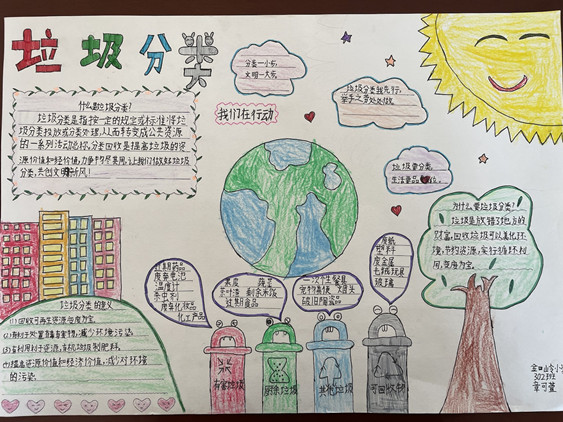 垃圾分类
分类一小步
文明一大步
我们在行动
垃圾分类我先行
举手之劳处处做
什么是垃圾分类?
垃圾分类是指按一定的规定或标准将垃
圾分类
的一系列活动总称,分类回收是提高垃圾的资
源价值和经济价值,力争物尽其用,让我们做好垃圾
分类,共创文明新风!
垃圾要分类
生活要品位
为什么要垃圾分类?
垃圾是放错了地方的
财富,回收垃圾可以美化环
境,节约资源,实行循环利
用,变废为宝。
过期药品
废弃电池
温度计
杀虫剂
废弃化妆品
化工产品
果皮 蔬菜
茶叶渣 剩余米饭
过期食品
一次性餐具
宠物粪便
破旧陶瓷品
废纸
塑料
废金属
毛绒玩具
玻璃
垃圾分类的意义
(1)回收可再生资源,变废为宝。
减少环境污染。
(4)提高资源价值和经济价值,减少对环境
的污染。
有害垃圾
厨余垃圾
其他垃圾
可回收物
302班
章可萱